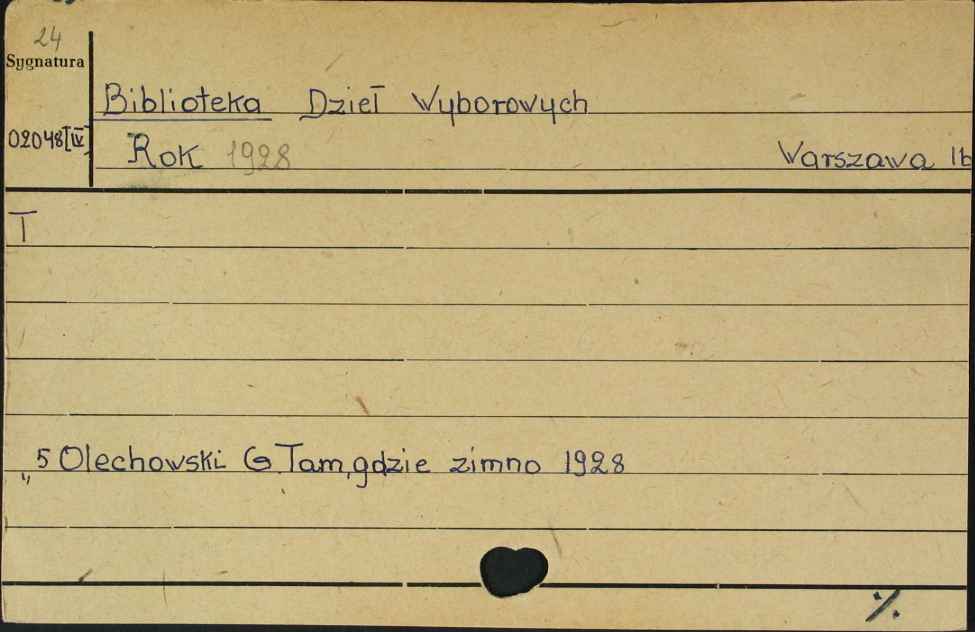 24
Sygnatura
Biblioteka Dzieł Wyborowych
02048[IV]
Rok 1928 Warszawa 16
T
„ 5 Olechowski G Tam, gdzie zimno 1928
%